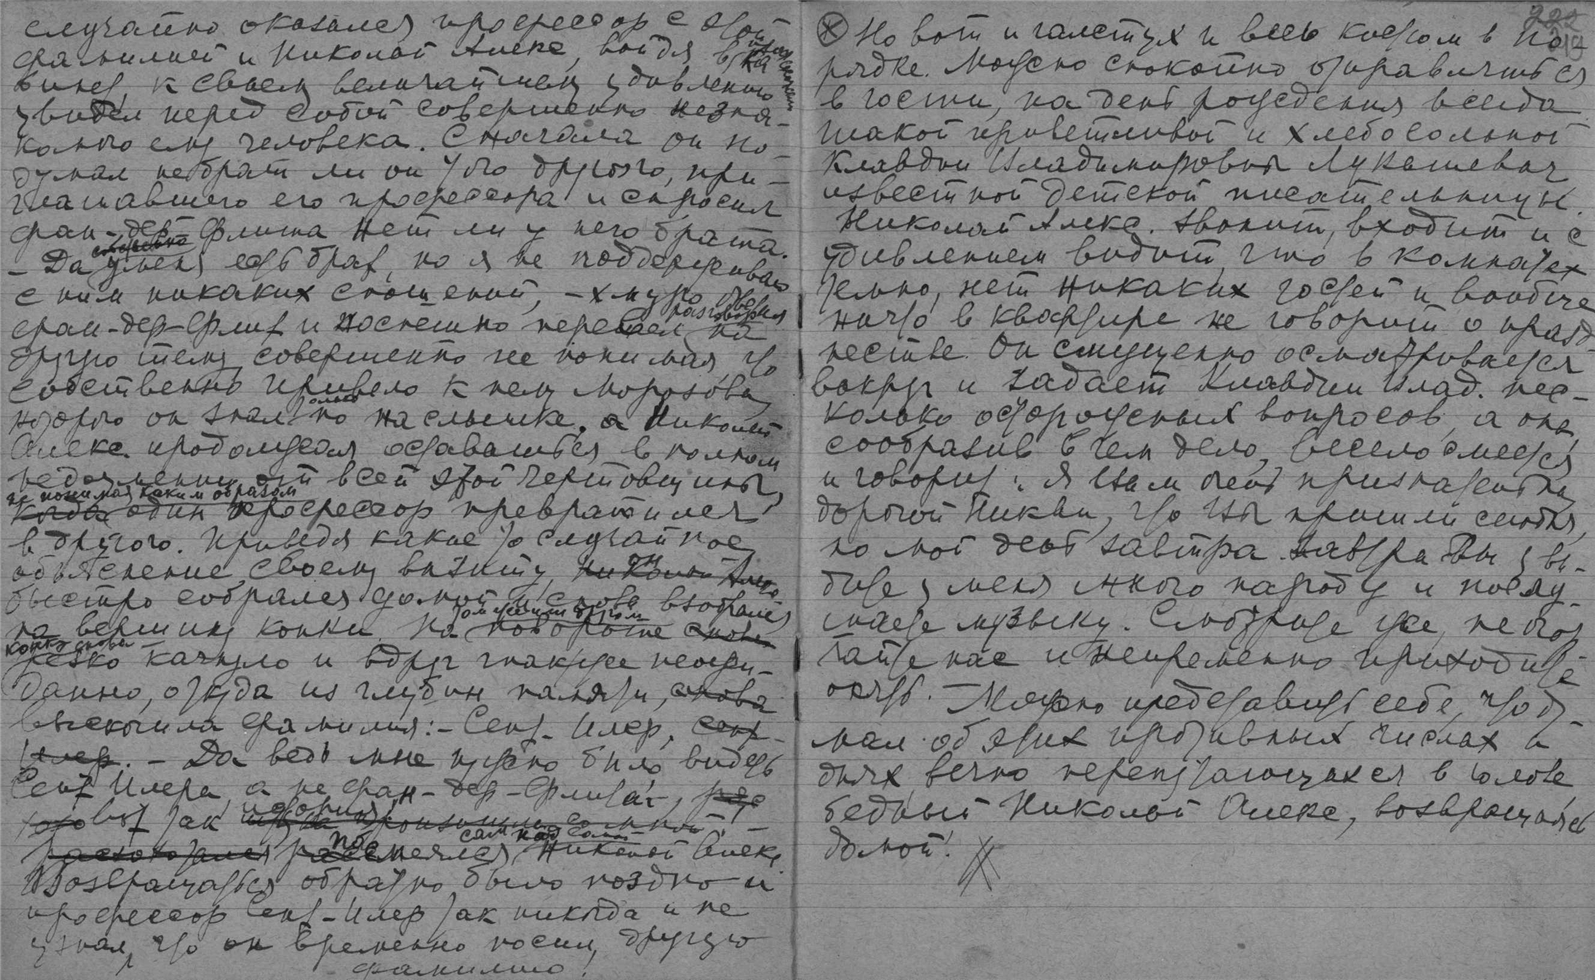 случайно оказался профессор с этой
фамилией и Николай Алекс, войдя в его ка-
бинет, к своему величайшему удивлению
увидел перед собой совершенно незна-
комого ему человека. Сначала он по-
думал не брат ли он того другого, при-
глашавшего его профессора и спросил
фан-дер Флита нет ли у него брата.
– Да у меня есть брат, но я не поддерживаю
с ним никаких сношений, – хмуро ответил
фан-дер-Флит и поспешно перевел разговор на
другую тему, совершенно не понимая что
собственно привело к нему Морозова,
которого он знал только по наслышке, а Николай
Алекс. продолжал оставаться в полном
недоумении от всей этой чертовщины,
не понимая каким образом
когда один профессор превратился
в другого. Приведя какое то случайное
объяснение своему визиту, он Николай Алекс
быстро собрался домой и снова взобрался
на вершину конки. На том же самом
повороте снова
конку снова
резко качнуло и вдруг также неожи-
данно, откуда из глубин памяти, снова
выскочила фамилия: – Сент-Илер, Сент-
Илер. – Да ведь мне нужно было видеть
Сент Илера, а не фан-дер-Флита!,
вот так история,
рассмеялся сам над собой Николай Алекс.
Возвращаться обратно было поздно и
профессор Сент-Илер так никогда и не
узнал, что он временно носил другую
фамилию.
Ⓧ Но вот и галстух и весь костюм в по-
рядке. Можно спокойно отправляться
в гости, на день рождения всегда
такой приветливой и хлебосольной
Клавдии Владимировны Лукашевич
известной детской писательницы.
Николай Алекс. звонит, входит и с
удивлением видит, что в комнатах
темно, нет никаких гостей и вообще
ничто в квартире не говорит о празд-
нестве. Он смущенно осматривается
вокруг и задает Клавдии Влад. нес-
колько осторожных вопросов, а она,
сообразив в чем дело, весело смеется
и говорит: Я Вам очень признательна,
дорогой Никол, что Вы пришли сегодня,
но мой день завтра. Завтра Вы уви-
дите у меня много народу и послу-
шаете музыку. Смотрите же, не огор-
чайте нас и непременно приходите
опять. – Можно представить себе, что ду-
мал об этих противных числах и
днях, вечно перепутающихся в голове
бедный Николай Алекс, возвращаясь
домой!